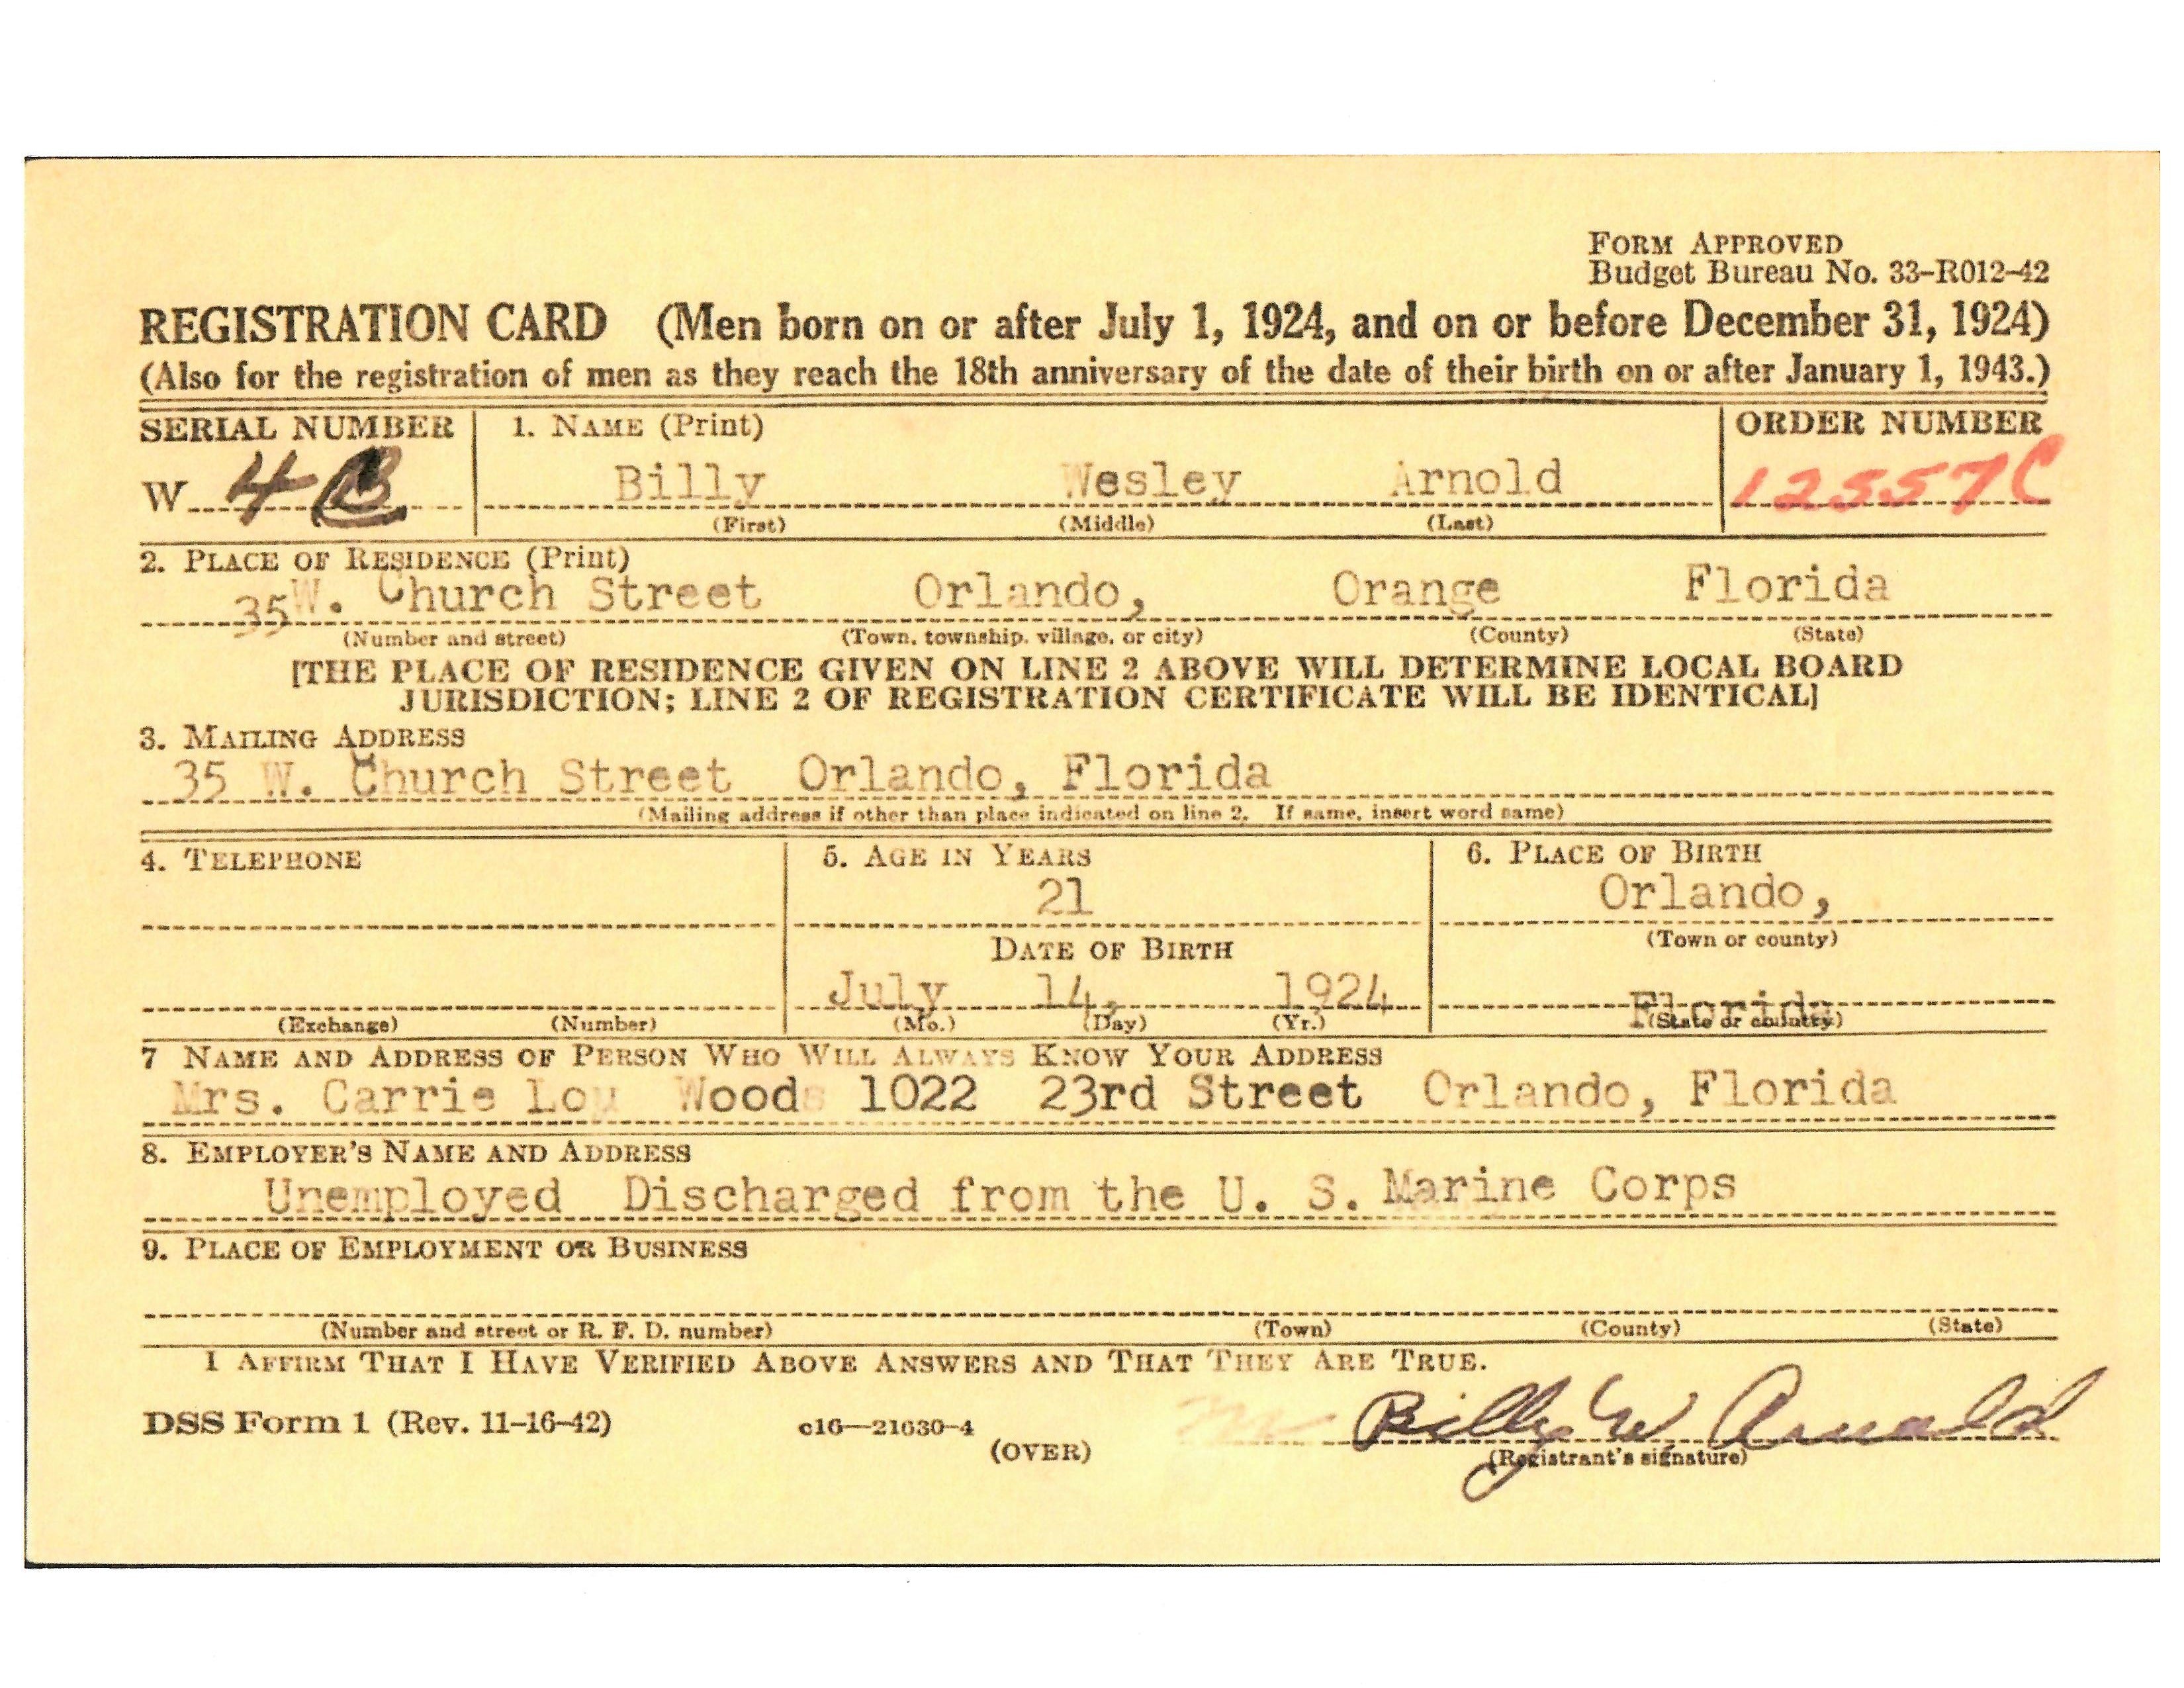 FORM APPROVED
Budget Bureau No. 33-R012-42
REGISTRATION CARD (Men born on or after July 1, 1924, and on or before December 31, 1924)
(Also for the registration of men as they reach the 18th anniversary of the date of their birth on or after January 1, 1943.)
SERIAL NUMBER 1. NAME (Print) ORDER NUMBER
W 4 Billy Wesley Arnold 12557C
(First) (Middle) (Last)
2. PLACE OF RESIDENCE (Print)
35 W. Church Street Orlando, Orange Florida
(Number and street) (Town, township, village, or city) (County) (State)
[THE PLACE OF RESIDENCE GIVEN ON LINE 2 ABOVE WILL DETERMINE LOCAL BOARD
JURISDICTION; LINE 2 OF REGISTRATION CERTIFICATE WILL BE IDENTICAL]
3. MAILING ADDRESS
35 W. Church Street Orlando, Florida
(Mailing address if other than place indicated on line 2. If same, insert word same)
4. TELEPHONE 5. AGE IN YEARS 6. PLACE OF BIRTH
21 Orlando,
DATE OF BIRTH (Town or county)
July 14, 1924 Florida
(Exchange) (Number) (Mo.) (Day) (Yr.) (State or country)
7 NAME AND ADDRESS OF PERSON WHO WILL ALWAYS KNOW YOUR ADDRESS
Mrs. Carrie Lou Woods 1022 23rd Street Orlando, Florida
8. EMPLOYER'S NAME AND ADDRESS
Unemployed Discharged from the U. S. Marine Corps
9. PLACE OF EMPLOYMENT OR BUSINESS
(Number and street or R. F. D. number) (Town) (County) (State)
I AFFIRM THAT I HAVE VERIFIED ABOVE ANSWERS AND THAT THEY ARE TRUE.
DSS Form 1 (Rev. 11-16-42) c16—21630-4 Billy W Arnold
(OVER) (Registrant's signature)